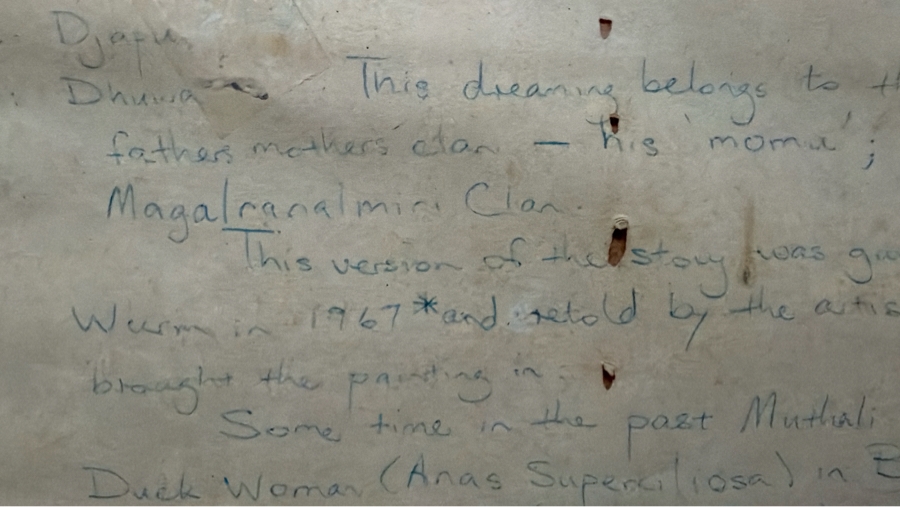 Djapu
Dhuwa This dreaming belongs to
fathers mothers' clan — his 'momu';
Magalranalmiri Clan.
This version of the story was
Wurm in 1967 * and retold by the
brought the painting in.
Some time in the past Muthali
Duck Woman (Anas Superciliosa) in